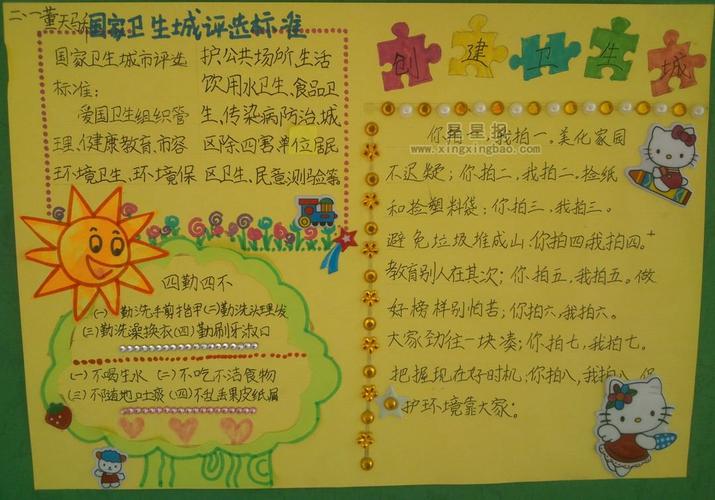 二、一董天马
国家卫生城评选标准
国家卫生城市评选
标准:
爱国卫生组织管
理、健康教育、市容
环境卫生、环境保
护公共场所、生活
饮用水卫生、食品卫
生、传染病防治、城
区除四害、单位居民
区卫生、民意测验等
四勤四不
(一)勤洗手剪指甲(二)勤洗头理发
(三)勤洗澡换衣(四)勤刷牙漱口
(一)不喝生水 (二)不吃不洁食物
(三)不随地吐痰 (四)不乱丢果皮纸屑
创建卫生城
星星报
www.xingxingbao.com
你拍一,我拍一。美化家园
不迟疑;你拍二,我拍二。捡纸
和捡塑料袋;你拍三,我拍三。
避免垃圾堆成山;你拍四,我拍四。
教育别人在其次;你拍五,我拍五。做
好榜样别怕苦;你拍六,我拍六。
大家劲往一块凑;你拍七,我拍七。
把握现在好时机;你拍八,我拍八,保
护环境靠大家。